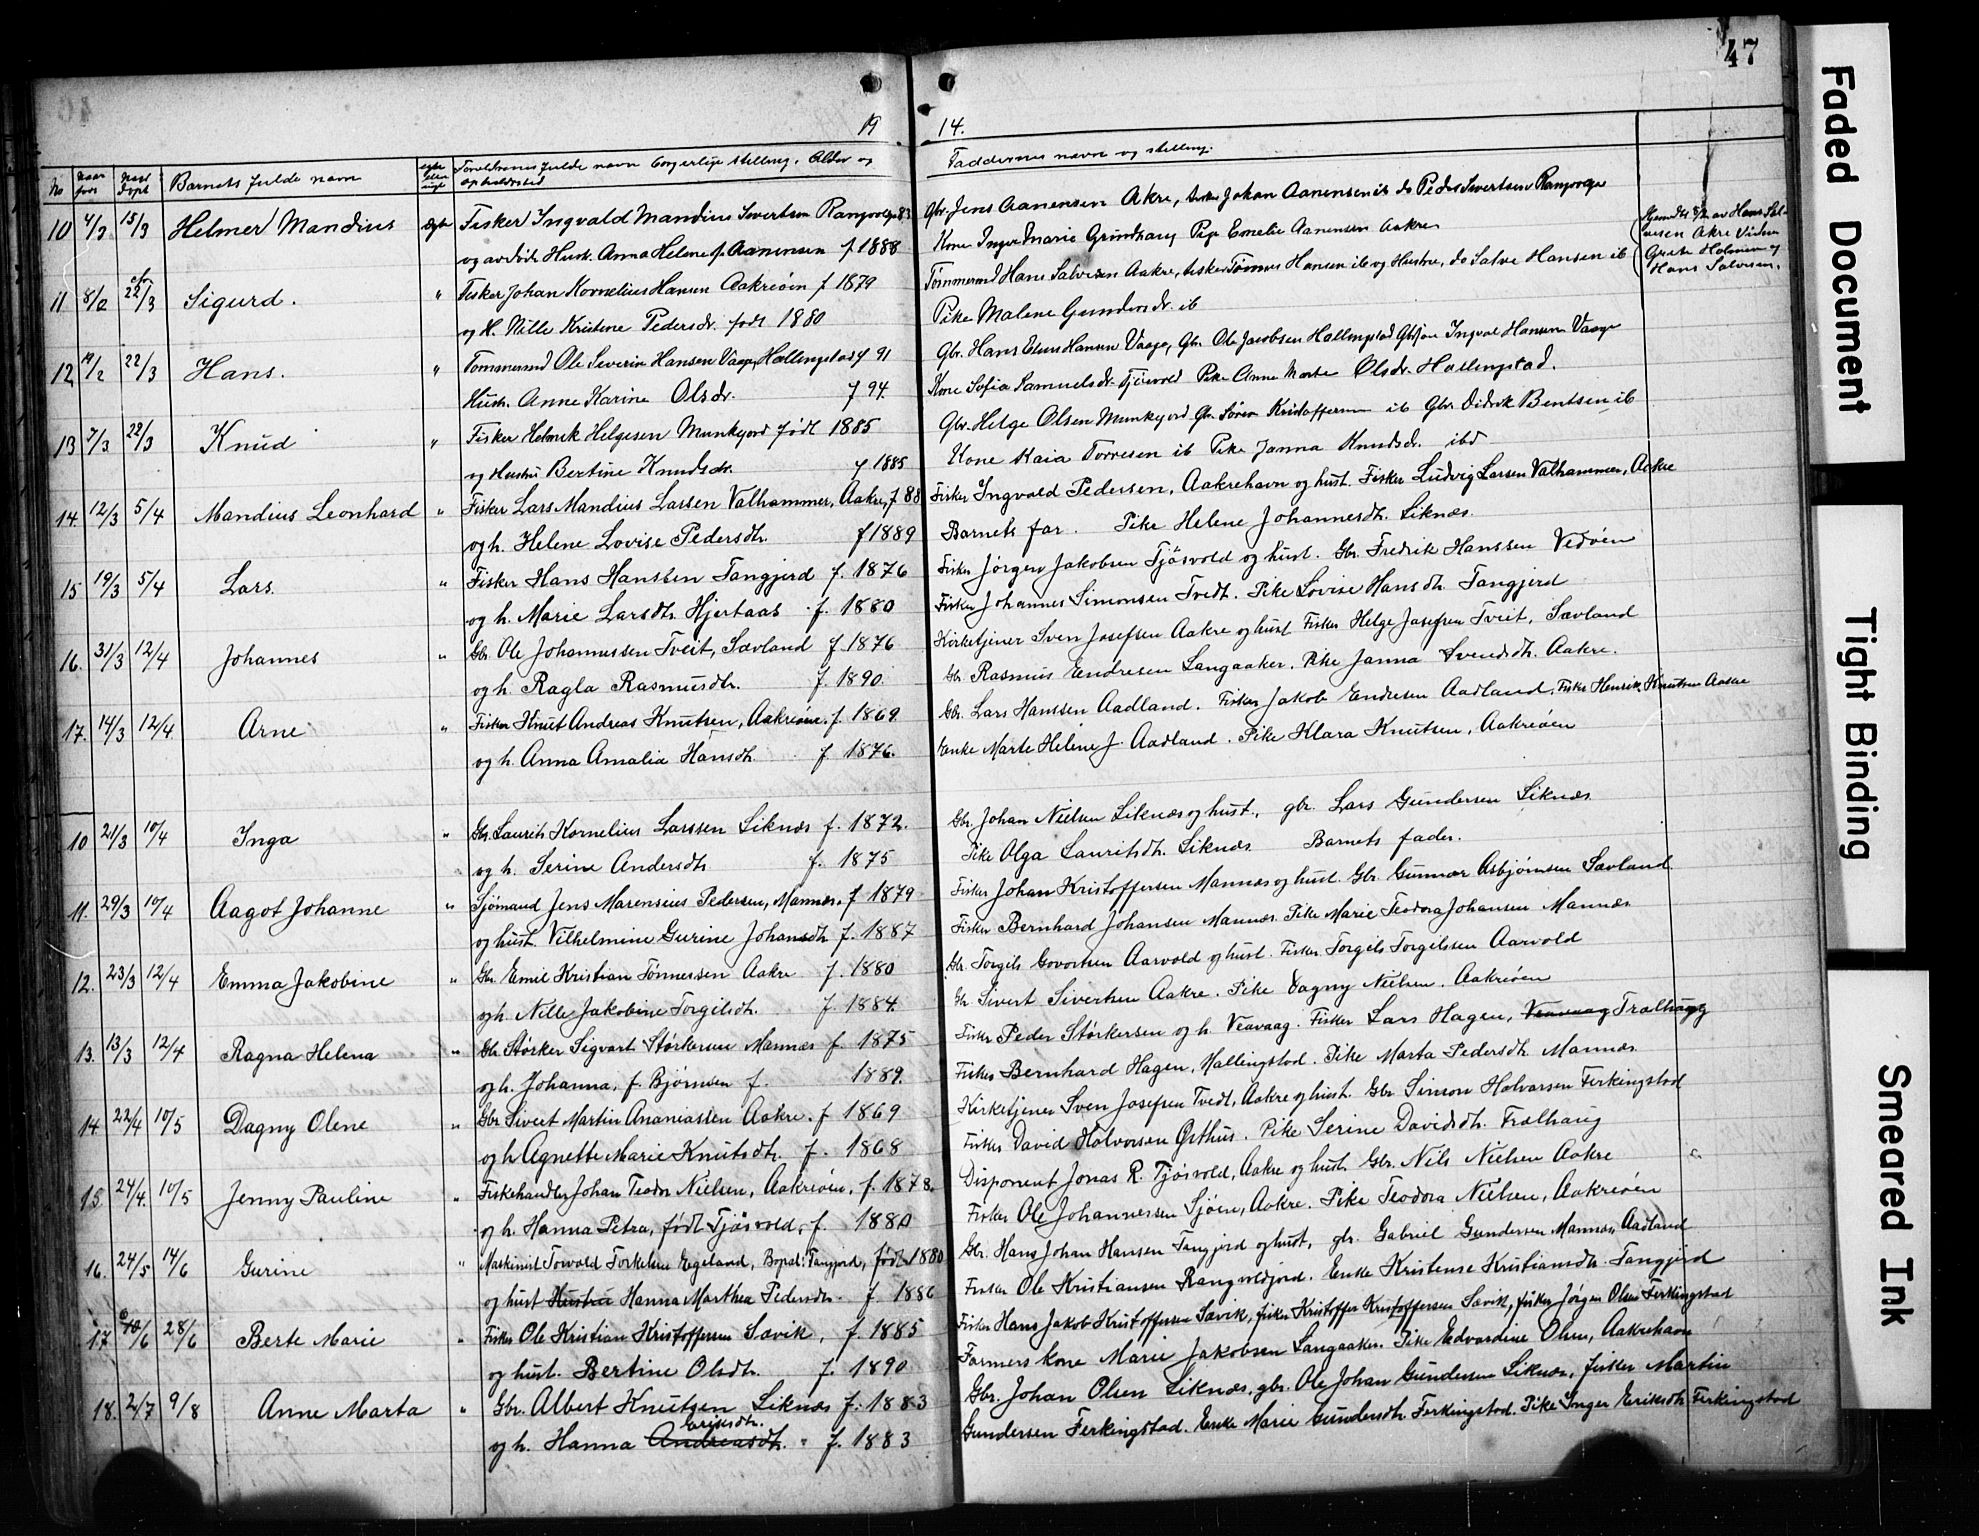 47
19 14.
No Naar født Naar døpt Barnets fulde navn egte eller uegte Forældrenes fulde navn borgerlige stilling. Alder og opholdssted Faddernes navn og stilling.
10 4/3 15/3 Helmer Mandius ægte Fisker Ingvald Mandius Sivertsen f 83 Gbr. Jens Aanensen Akre, Johan Aanensen ib
og avdøde Hust. Anna Helene f. Aanensen f 1888 Kone Inger Marie Grindhaug Pige Emelie Aanensen Aakre
11 8/2 22/3 Sigurd. " Fisker Johan Kornelius Hansen Aakreøen f 1879 Tømmermd Hans Salvesen Aakre, Fisker Tønnes Hansen ib og Hustru, do Salve Hansen ib
og H. Nille Kristine Pedersdr. født 1880 Pike Malene Gundersdr. ib
12 19/2 22/3 Hans. " Tømmermd Ole Severin Hansen Vaage, Hallingstad f 91 Gbr. Hans Hansen Vaage, Gbr. Ole Jacobsen Hallingstad Ingval Hansen Vaage
Hustr. Anne Karine Olsdr. f 94. Kone Sofia Samuelsdr. Pike Anne Marte Olsdr. Hallingstad.
13 7/3 22/3 Knud " Fisker Helmik Helgesen Munkejord født 1885 Gbr. Helge Olsen Munkejord Gbr Sören Kristoffersen ib Gbr. Didrik Bentsen ib
og Hustru Bertine Knudsdr. f 1885 Kone Kaia Torresen ib Pike Janna Knudsdr. ibd
14. 12/3 5/4 Mandius Leonhard " Fisker Lars Mandius Larsen Valhammer, Aakre, f 88 Fisker Ingvald Pedersen, Aakrehavn og hust. Fisker Ludvig Larsen Valhammer, Aakre
og h. Helene Lovise Pedersdtr. f 1889 Barnets far. Pike Helene Johannesdtr. Liknæs.
15 19/3 5/4 Lars. " Fisker Hans Hanssen Tangjerd f. 1876 Fisker Jørgen Jakobsen Tjøsvold og hust. Gbr. Fredrik Hanssen Vedøen
og h. Marie Larsdtr. Hjertaas f. 1880 Fisker Johannes Simonsen Tvedt. Pike Lovise Hansdtr. Tangjerd
16. 31/3 12/4 Johannes " Gbr. Ole Johannessen Tveit, Sævland f. 1876 Kirketjener Sven Josefsen Aakre og hust Fisker Helge Josefsen Tveit, Sævland
og h. Ragla Rasmusdtr. f. 1890. Gbr. Rasmus Endresen Langaaker. Pike Janna Svendsdtr. Aakre.
17. 14/3 12/4 Arne " Fisker Knut Andreas Knutsen, Aakreøen. f. 1869. Gbr. Lars Hanssen Aadland. Fisker Jakob Endresen Aadland. Fisker Henrik Knutsen Aakre
og h. Anna Amalia Hansdtr. f. 1876. Enke Marte Heline J. Aadland. Pike Klara Knutsen, Aakreøen
10 21/3 10/4 Inga " Gbr. Laurits Kornelius Larssen Liknæs f. 1872. Gbr. Johan Nielsen Liknæs og hust., gbr. Lars Gundersen Liknæs.
og h. Serine Andersdtr. f. 1875 Pike Olga Lauritsdtr. Liknæs. Barnets fader.
11. 29/3 10/4 Aagot Johanne " Sjømand Jens Marensius Pedersen, Mannæs. f 1879 Fisker Johan Kristoffersen Mannæs og hust. Gbr. Gunnar Asbjørnsen Sævland.
og hust. Vilhelmine Gurine Johansdtr. f. 1887 Fisker Bernhard Johansen Mannæs. Pike Marie Teodora Johansen Mannæs
12. 23/3 12/4 Emma Jakobine " Gbr. Emil Kristian Tønnessen Aakre f. 1880 Gbr. Torgils Govortsen Aarvold og hust. Fisker Torgils Torgilssen Aarvold
og h. Nille Jakobine Torgilsdtr. f. 1884. Gbr. Sivert Sivertsen Aakre. Pike Dagny Nielsen, Aakreøen
13. 13/3 12/4 Ragna Helena " Gbr. Størker Sigvart Størkersen Mannæs f. 1875 Fisker Peder Størkersen og h. Veavaag. Fisker Lars Hagen, Veavaag Trælhaug
og h. Johanna, f. Bjørnsen f. 1889. Fisker Bernhard Hagen, Hallingstad. Pike Marta Pedersdtr. Mannæs
14. 22/4 10/5 Dagny Olene " Gbr. Sivert Martin Ananiassen Aakre. f 1869 Kirketjener Sven Josefsen Tvedt, Aakre og hust. Gbr. Simon Halvarsen Ferkingstad
og h Agnette Marie Knutsdtr. f. 1868 Fisker David Halvorsen Østhus. Pike Serine Davidsdtr. Trælhaug
15. 24/4. 10/5 Jenny Pauline " Fiskehandler Johan Teodor Nielsen, Aakreøen, f. 1878. Disponent Jonas R. Tjøsvold, Aakre og hust. Gbr. Nils Nielsen Aakre
og h. Hanna Petra, født Tjøsvold, f. 1880 Fisker Ole Johannessen Sjøen, Aakre. Pike Teodora Nielsen, Aakreøen
16. 24/5 14/6 Gurine " Maskinist Torvald Torkelsen Egeland, Bopal: Tangjerd, født 1880 Gbr. Hans Johan Hansen Tangjerd og hust, gbr. Gabriel Gundersen Mannæs, Aadland
og hust Hustru Hanna Marthea Pedersdtr. f. 1886 Fisker Ole Kristiansen Rangvoldjord. Enke Kristense Kristiansdtr. Tangjerd
17. 10/6 28/6 Berte Marie " Fisker Ole Kristian Kristoffersen Sævik, f. 1885 Fisker Hans Jakob Kristoffersen Sævik, fisker Kristoffer Kristoffersen Sævik, fisker Jørgen Olsen Ferkingstad
og hust. Bertine Olsdtr. f. 1890 Farmers kone Marie Jakobsen Langaaker. Pike Edvardine Olsen, Aakrehavn
18. 2/7 9/8 Anne Marta " Gbr. Albert Knutsen Liknæs f. 1883 Gbr. Johan Olsen Liknæs, gbr. Ole Johan Gundersen Liknæs, fisker Martin
og h. Hanna Andreasdtr. Eriksdtr. f. 1883 Gundersen Ferkingstad. Enke Marie Gundersdtr. Ferkingstad. Pike Inger Eriksdtr. Ferkingstad
Faded Document
Tight Binding
Smeared Ink